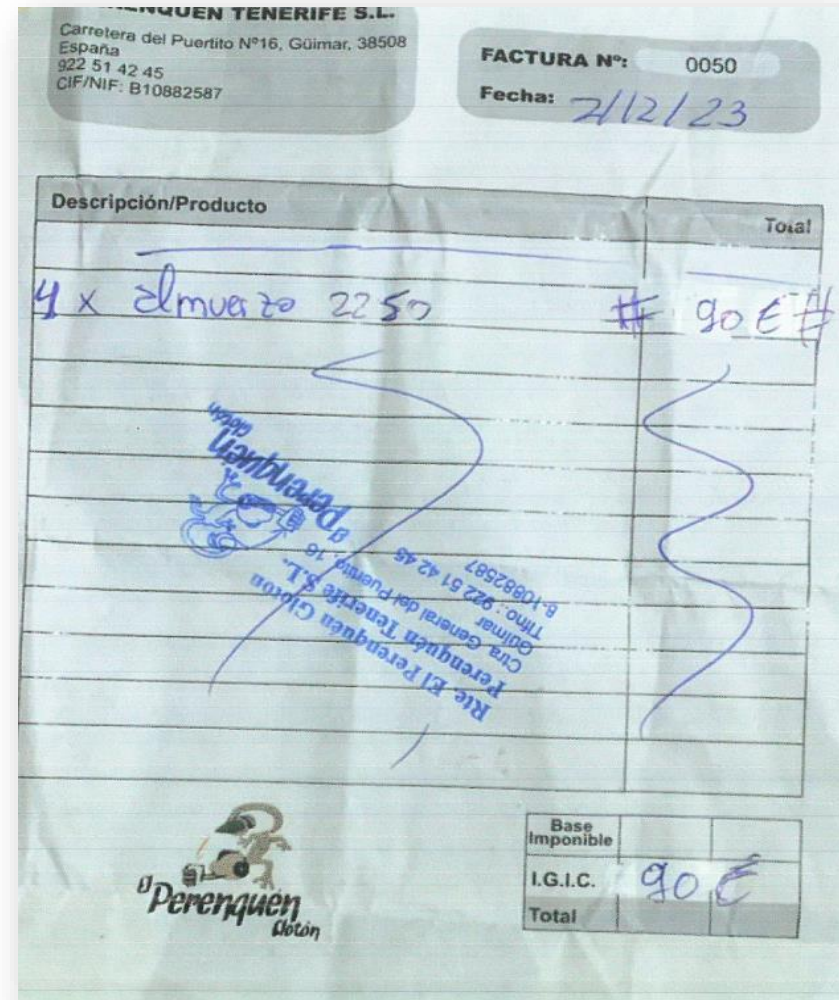 PERENQUEN TENERIFE S.L.
Carretera del Puertito Nº16, Güimar, 38508
España
922 51 42 45
CIF/NIF: B10882587
FACTURA Nº: 0050
Fecha: 2/12/23
Descripción/Producto Total
4 x almuerzo 2250 # 90 € #
el Perenquén
Glotón
Rte. El Perenquén Glotón
Perenquén Tenerife S.L.
Ctra. General del Puertito, 16
Güímar
Tlfno.: 922 51 42 45
B-10882587
el Perenquén
Glotón
Base
Imponible
I.G.I.C. 90 €
Total